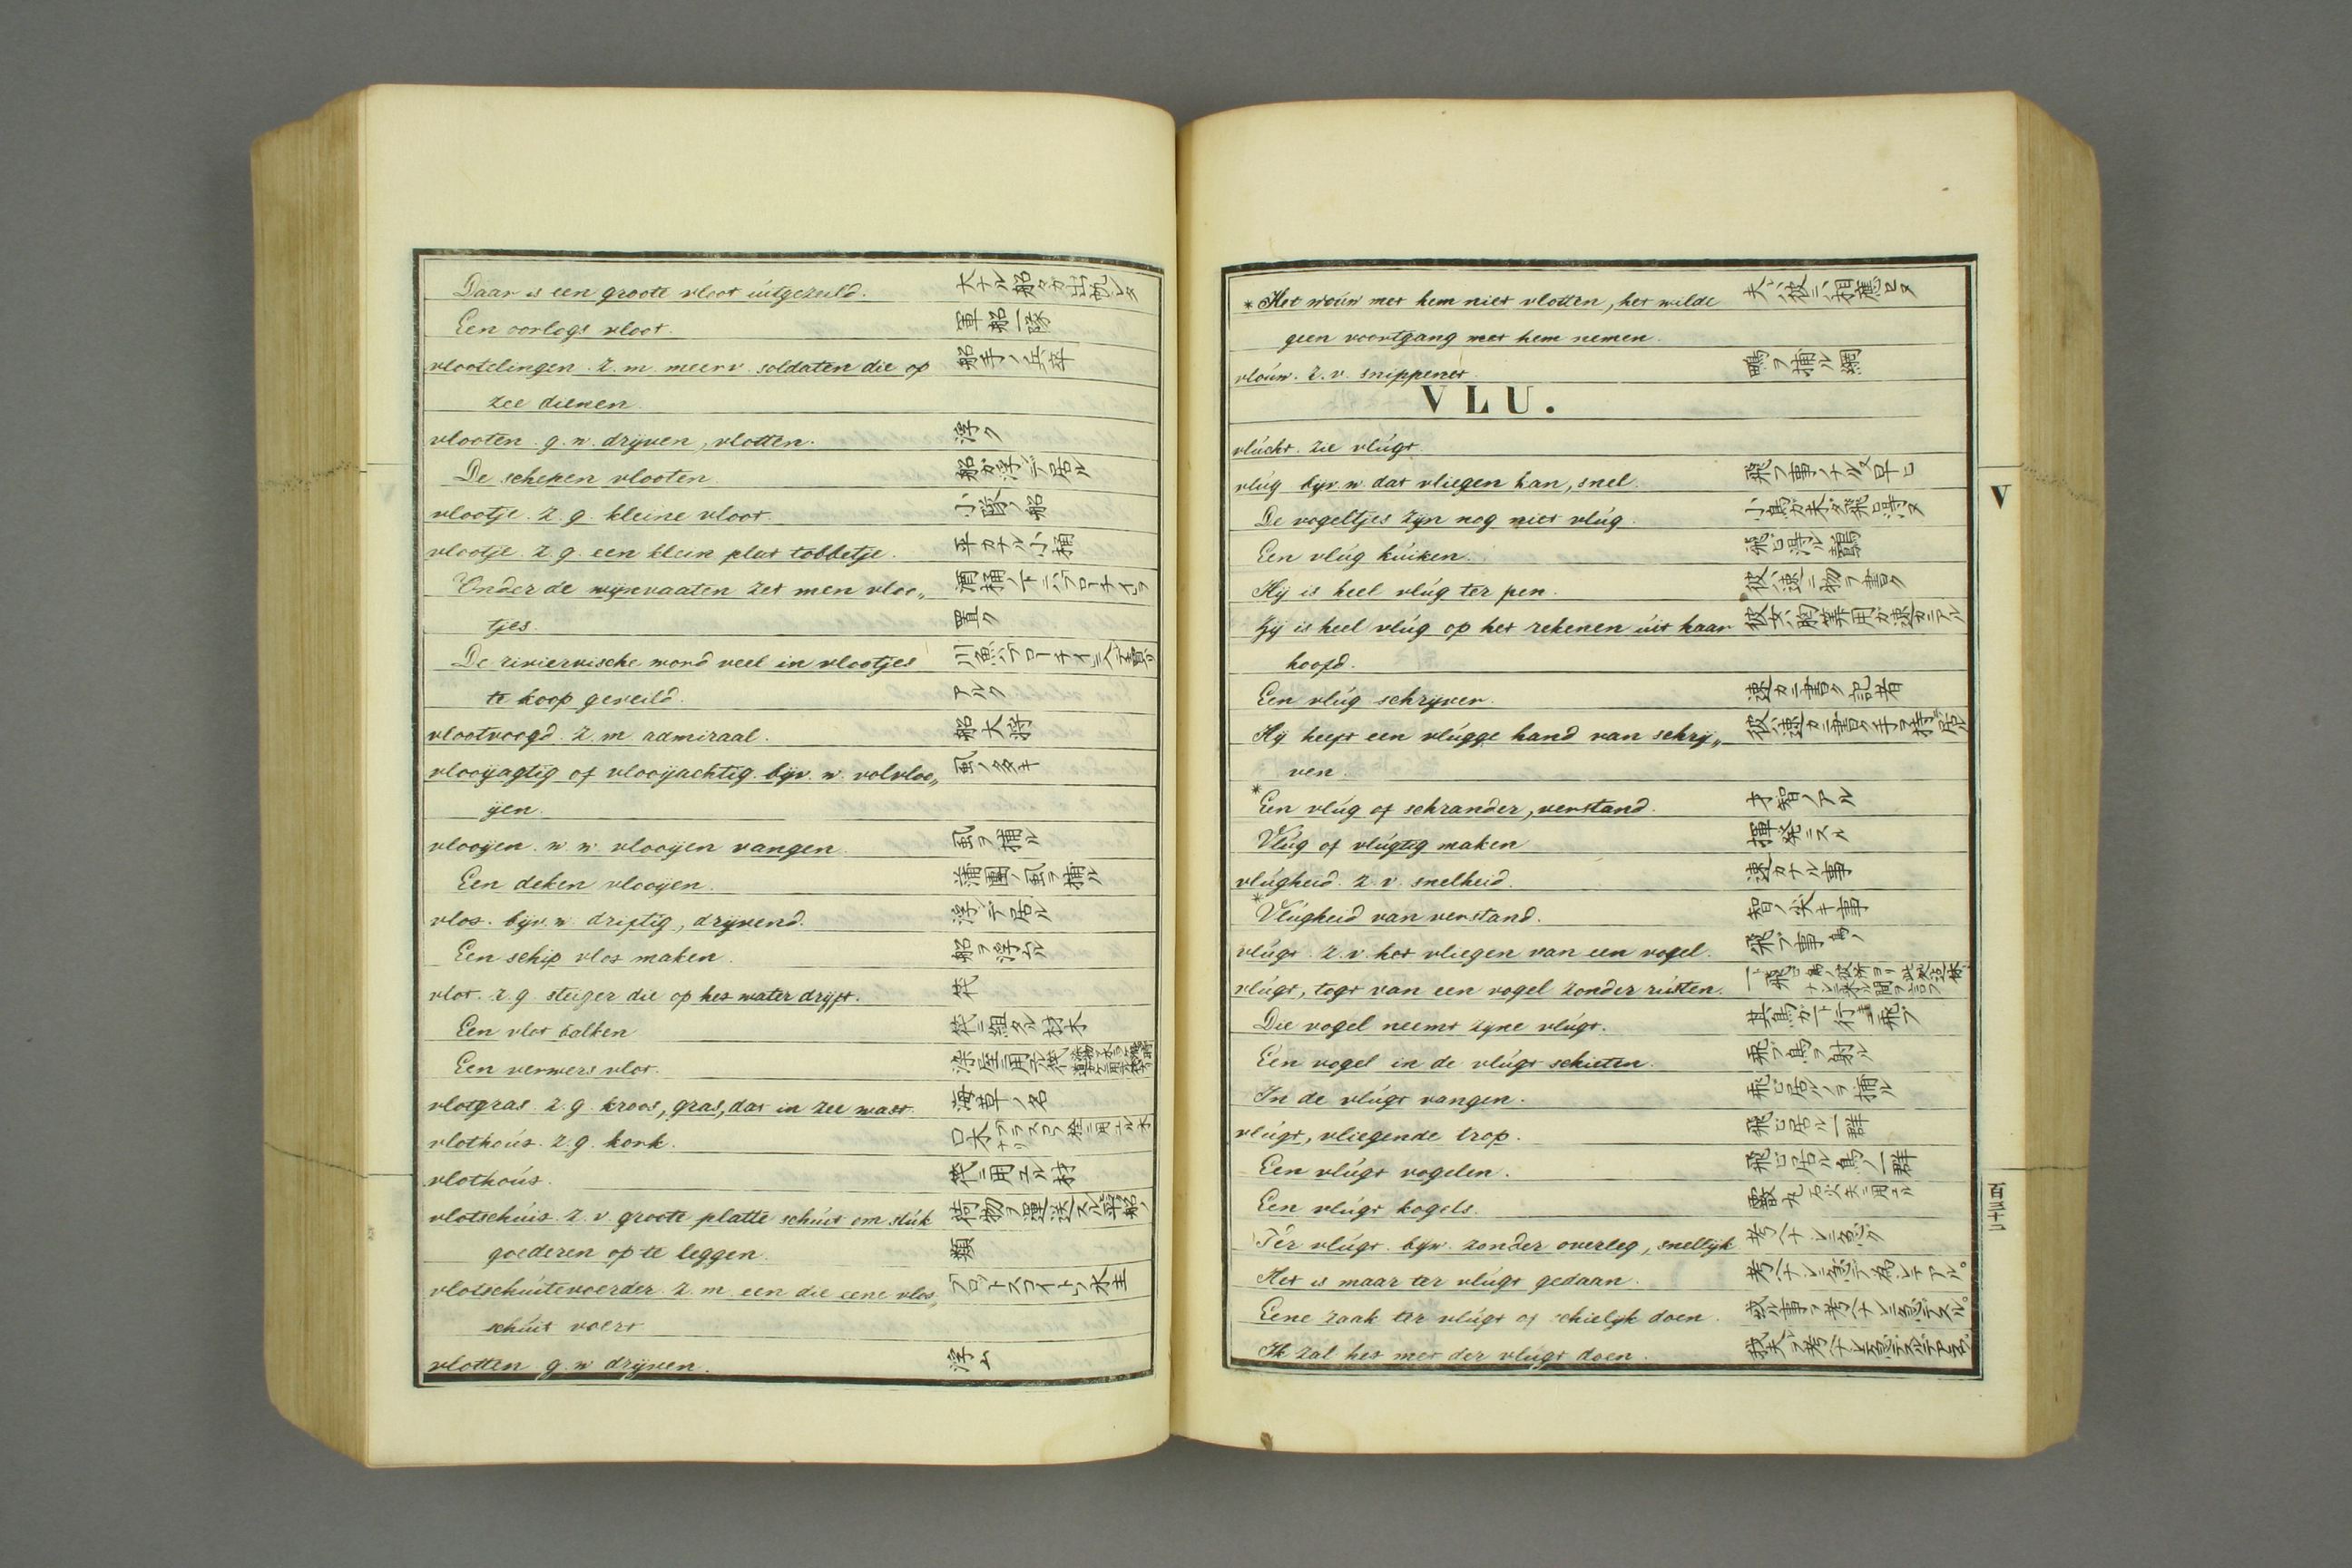 Daar is een groote vloot úitgezeild. 大ナル船々ガ出帆シタ
Een oorlogs vloot. 軍船一隊
vlootelingen. z. m. meerv. soldaten die op 船手ノ兵卒
zee dienen.
vlooten. g. w. drijven, vlotten. 浮ク
De schepen vlooten. 船ガ浮デ居ル
vlootje. z. g. kleine vloot. 小隊ノ船
vlootje. z. g. een klein plat tobbetje. 平カナル小桶
Onder de wijnvaaten zet men vloo„ 酒桶ノ下ニ
tjes. 置ク
De riviervische word veel in vlootjes 川魚
te koop geveild. アルク
vlootvoogd. z. m. admiraal. 船大将
vlooijagtig of vlooijachtig. bijv. w. vol vloo„ 虱ノ多キ
ijen.
vlooijen. w. w. vlooijen vangen. 虱ヲ捕ル
Een deken vlooijen. 蒲團ノ虱ヲ捕ル
vlot. bijv. w. driftig, drijvend. 浮デ居ル
Een schip vlot maken. 船ヲ浮ムル
vlot. z. g. steiger die op het water drijft. 筏
Een vlot balken 筏ニ組タル材木
Een verwers vlot. 染屋ニ用ル筏
vlotgras. z. g. kroos, gras, dat in zee wast. 海草ノ名
vlothoút. z. g. kork.
vlothoút. 筏ニ用ユル材
vlotschúit. z. v. groote platte schúit om stúk 荷物ヲ運送スル平船ノ
goederen op te leggen. 類
vlotschúitevoerder. z. m. een die eene vlot„
schúit voert
vlotten. g. w. drijven. 浮ム
* Het woúw met hem niet vlotten, het wilde 夫ハ彼ニ相應セヌ
geen voortgang met hem nemen.
vloúw. z. v. snippenet. 鴫ヲ捕ル網
VLU.
vlúcht. zie vlúgt.
vlúg bijv. w. dat vliegen kan, snel. 飛フ事ノナル又早ヒ
De vogeltjes zijn nog niet vlúg. 小鳥ガ未ダ飛ヒ得ヌ
Een vlúg kúiken. 飛ヒ得ル
Hij is heel vlúg ter pen. 彼ハ速ニ物ヲ書ク
Zij is heel vlúg op het rekenen úit haar 彼女ハ胸算用ガ速カニアル
hoofd.
Een vlúg schrijver. 速カニ書ク記者
Hij heeft een vlúgge hand van schrij„ 彼ハ速カニ書ク手ヲ持テ居ル
ven.
* Een vlúg of schrander, verstand. 才智ノアル
Vlúg of vlúgtig maken 揮発ニスル
vlúgheid. z. v. snelheid. 速カナル事
* Vlúgheid van verstand. 智ノ尖キ事
vlúgt. z. v. het vliegen van een vogel. 飛フ事 鳥ノ
vlúgt, togt van een vogel zonder rústen.
Die vogel neemt zijne vlúgt.
Een vogel in de vlúgt schieten. 飛フ鳥ヲ射ル
In de vlúgt vangen. 飛ヒ居ルヲ捕ル
vlúgt, vliegende trop. 飛ヒ居ル一群
Een vlúgt vogelen. 飛ヒ居ル鳥ノ一群
Een vlúgt kogels. 霰丸
Ter vlúgt. bijw. zonder overleg, snellijk 考ヘナシニ急ク
Het is maar ter vlúgt gedaan. 考ヘナシニ急デ為シテアル。
Eene zaak ter vlúgt of schielijk doen. 或ル事ヲ考ヘナシニ急デスル。
Ik zal het met der vlúgt doen.
V
百三十二